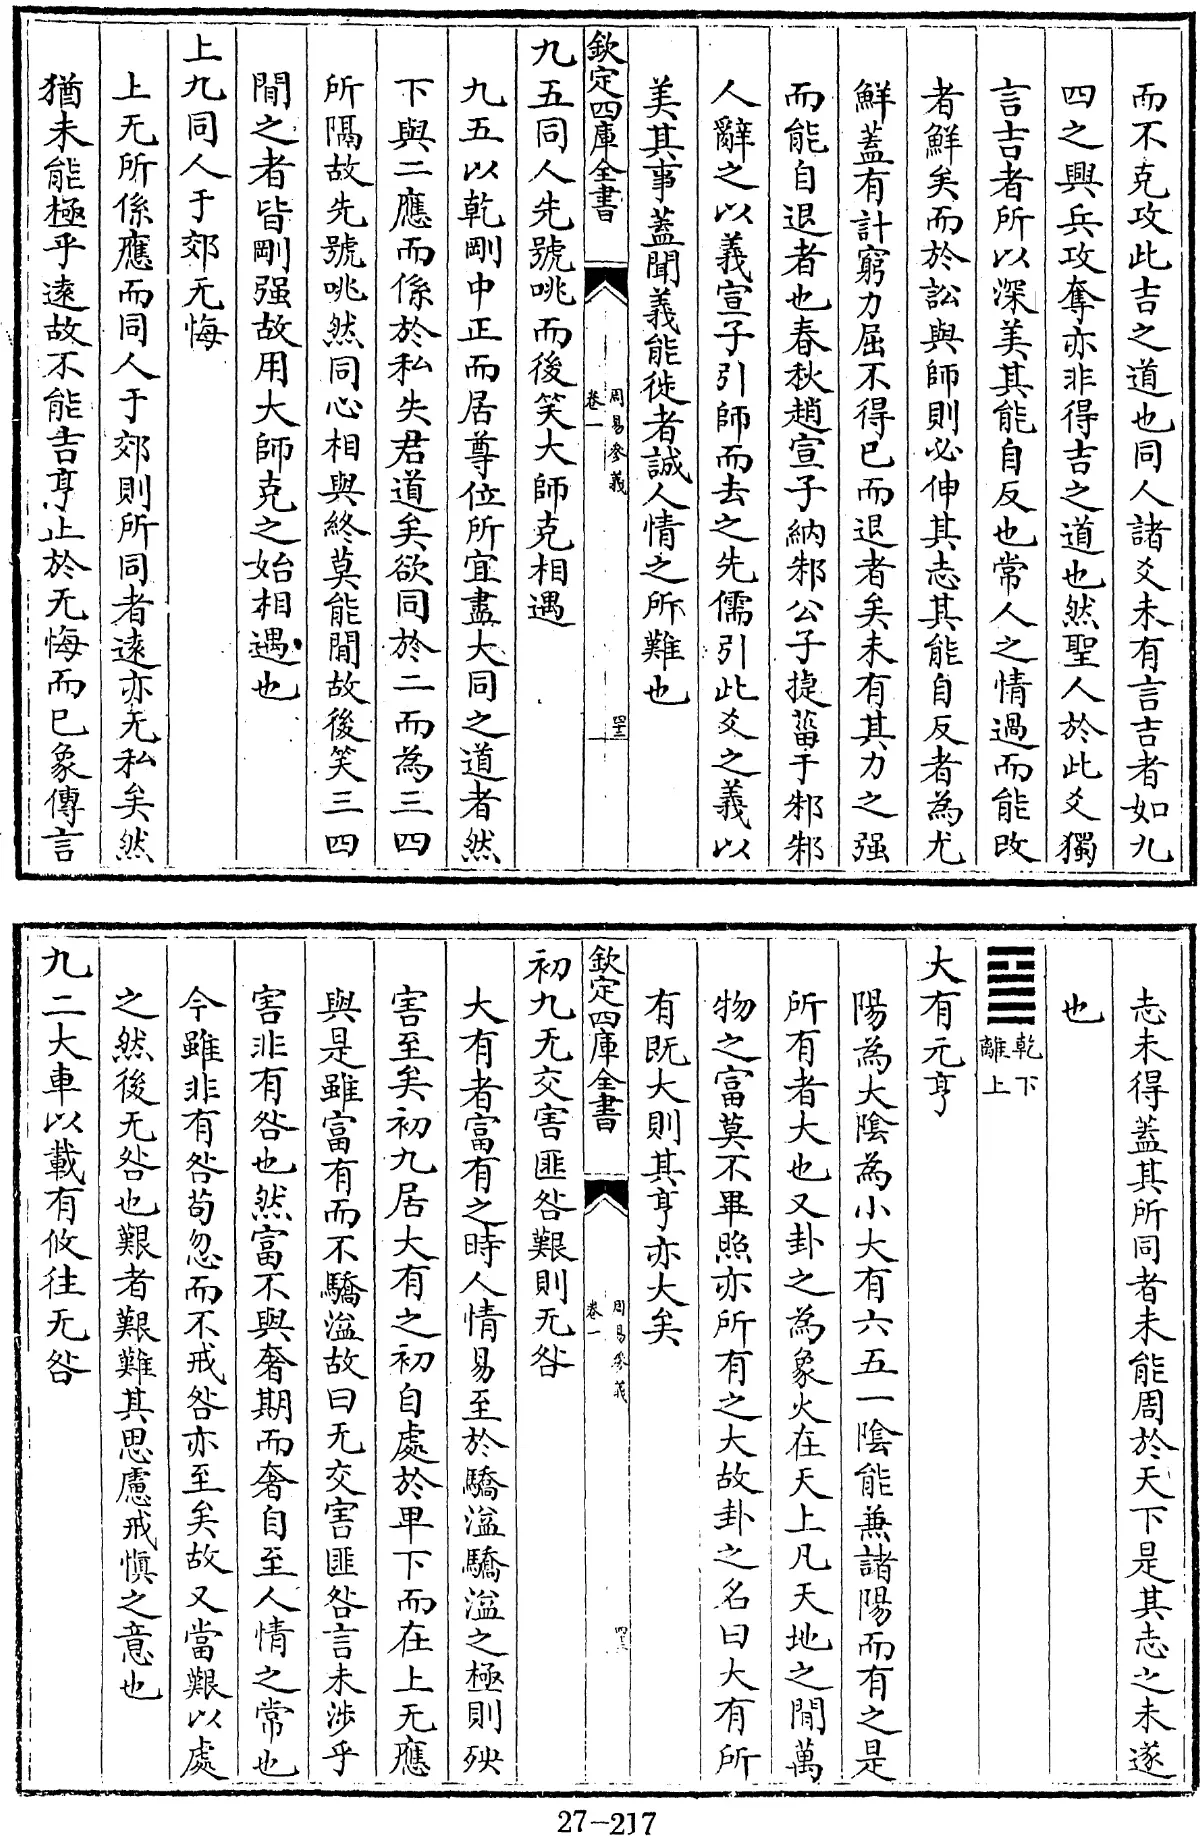 而不克攻此吉之道也同人諸爻未有言吉者如九
四之興兵攻奪亦非得吉之道也然聖人於此爻獨
言吉者所以深美其能自反也常人之情過而能改
者鮮矣而於訟與師則必伸其志其能自反者為尤
鮮蓋有計窮力屈不得已而退者矣未有其力之强
而能自退者也春秋趙宣子納邾公子捷菑于邾邾
人辭之以義宣子引師而去之先儒引此爻之義以
美其事蓋聞義能徙者誠人情之所難也
欽定四庫全書
周易參義
卷一
四十二
九五同人先號咷而後笑大師克相遇
九五以乾剛中正而居尊位所宜盡大同之道者然
下與二應而係於私失君道矣欲同於二而為三四
所隔故先號咷然同心相與終莫能間故後笑三四
間之者皆剛强故用大師克之始相遇也
上九同人于郊无悔
上无所係應而同人于郊則所同者遠亦无私矣然
猶未能極乎遠故不能吉亨止於无悔而已象傳言
志未得蓋其所同者未能周於天下是其志之未遂
也
乾下
離上
大有元亨
陽為大陰為小大有六五一陰能兼諸陽而有之是
所有者大也又卦之為象火在天上凡天地之間萬
物之富莫不畢照亦所有之大故卦之名曰大有所
有既大則其亨亦大矣
欽定四庫全書
周易參義
卷一
四十三
初九无交害匪咎艱則无咎
大有者富有之時人情易至於驕溢驕溢之極則殃
害至矣初九居大有之初自處於卑下而在上无應
與是雖富有而不驕溢故曰无交害匪咎言未涉乎
害非有咎也然富不與奢期而奢自至人情之常也
今雖非有咎苟忽而不戒咎亦至矣故又當艱以處
之然後无咎也艱者艱難其思慮戒慎之意也
九二大車以載有攸往无咎
27-217